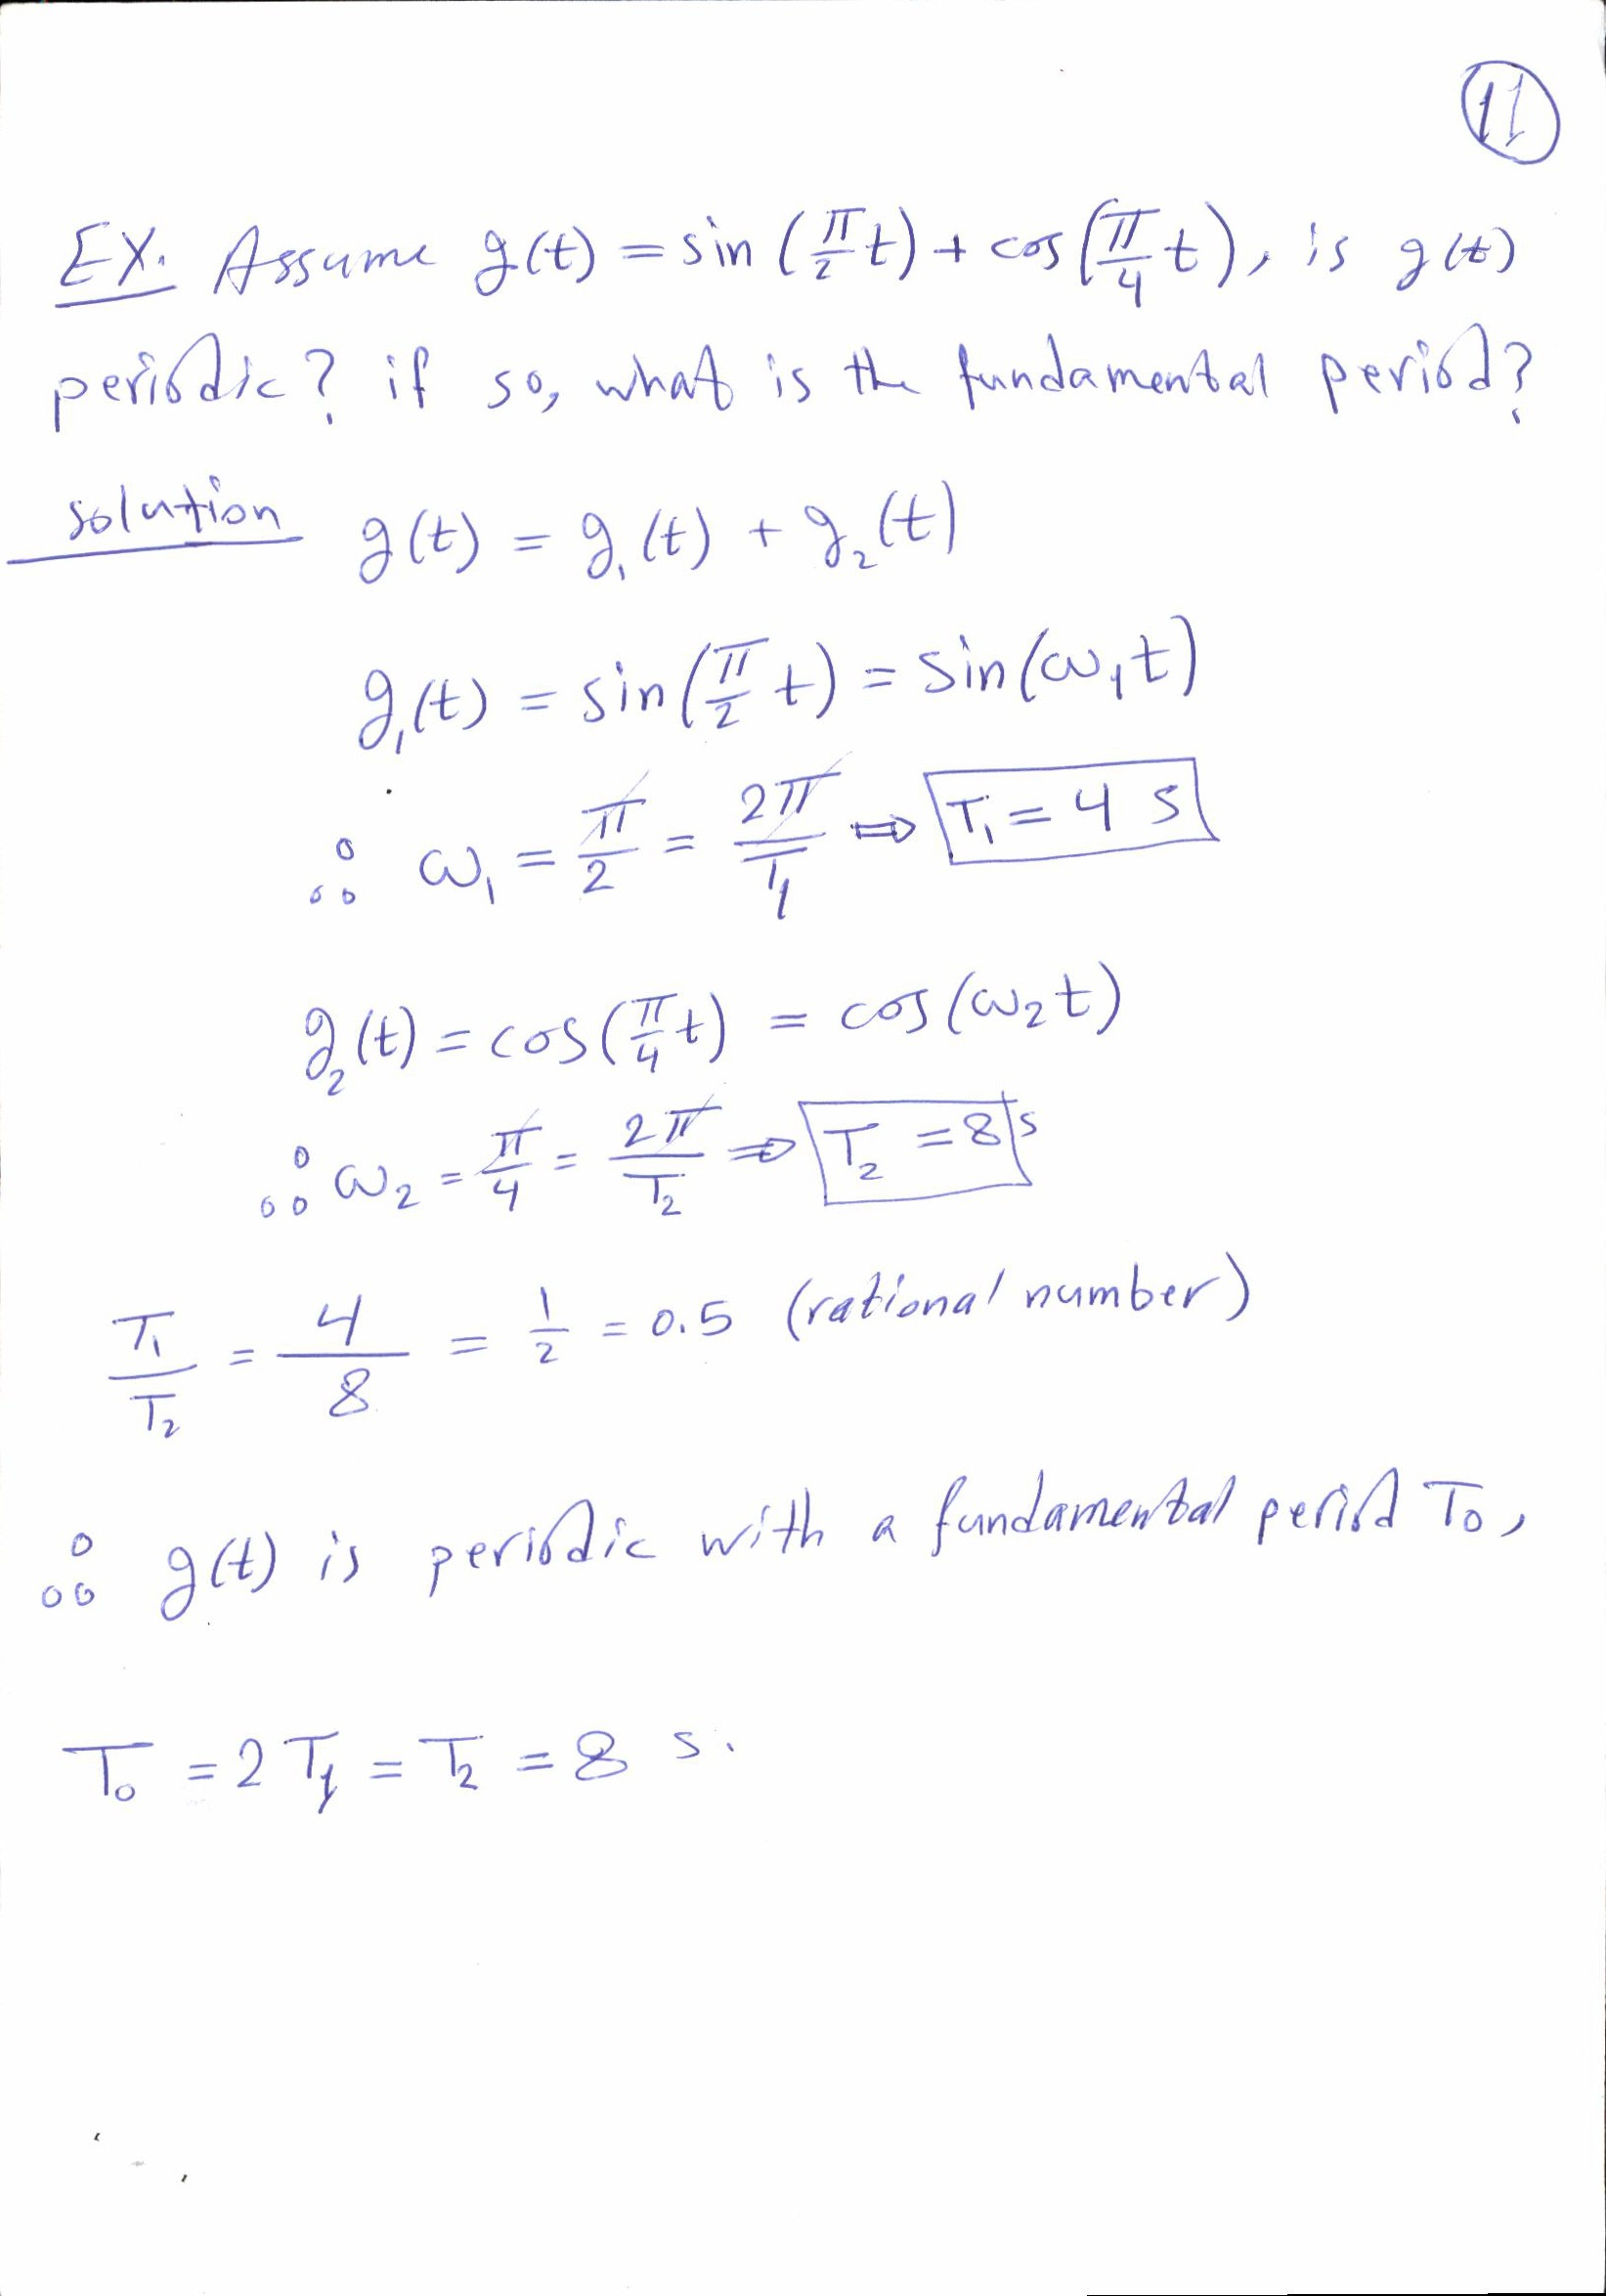 11
EX. Assume g(t) = sin(π/2 t) + cos(π/4 t), is g(t)
periodic? if so, what is the fundamental period?
solution g(t) = g₁(t) + g₂(t)
g₁(t) = sin(π/2 t) = sin(ω₁t)
∴ ω₁ = π/2 = 2π/T₁ ⇒ T₁ = 4 s
g₂(t) = cos(π/4 t) = cos(ω₂t)
∴ ω₂ = π/4 = 2π/T₂ ⇒ T₂ = 8 s
T₁/T₂ = 4/8 = 1/2 = 0.5 (rational number)
∴ g(t) is periodic with a fundamental period T₀,
T₀ = 2T₁ = T₂ = 8 s.